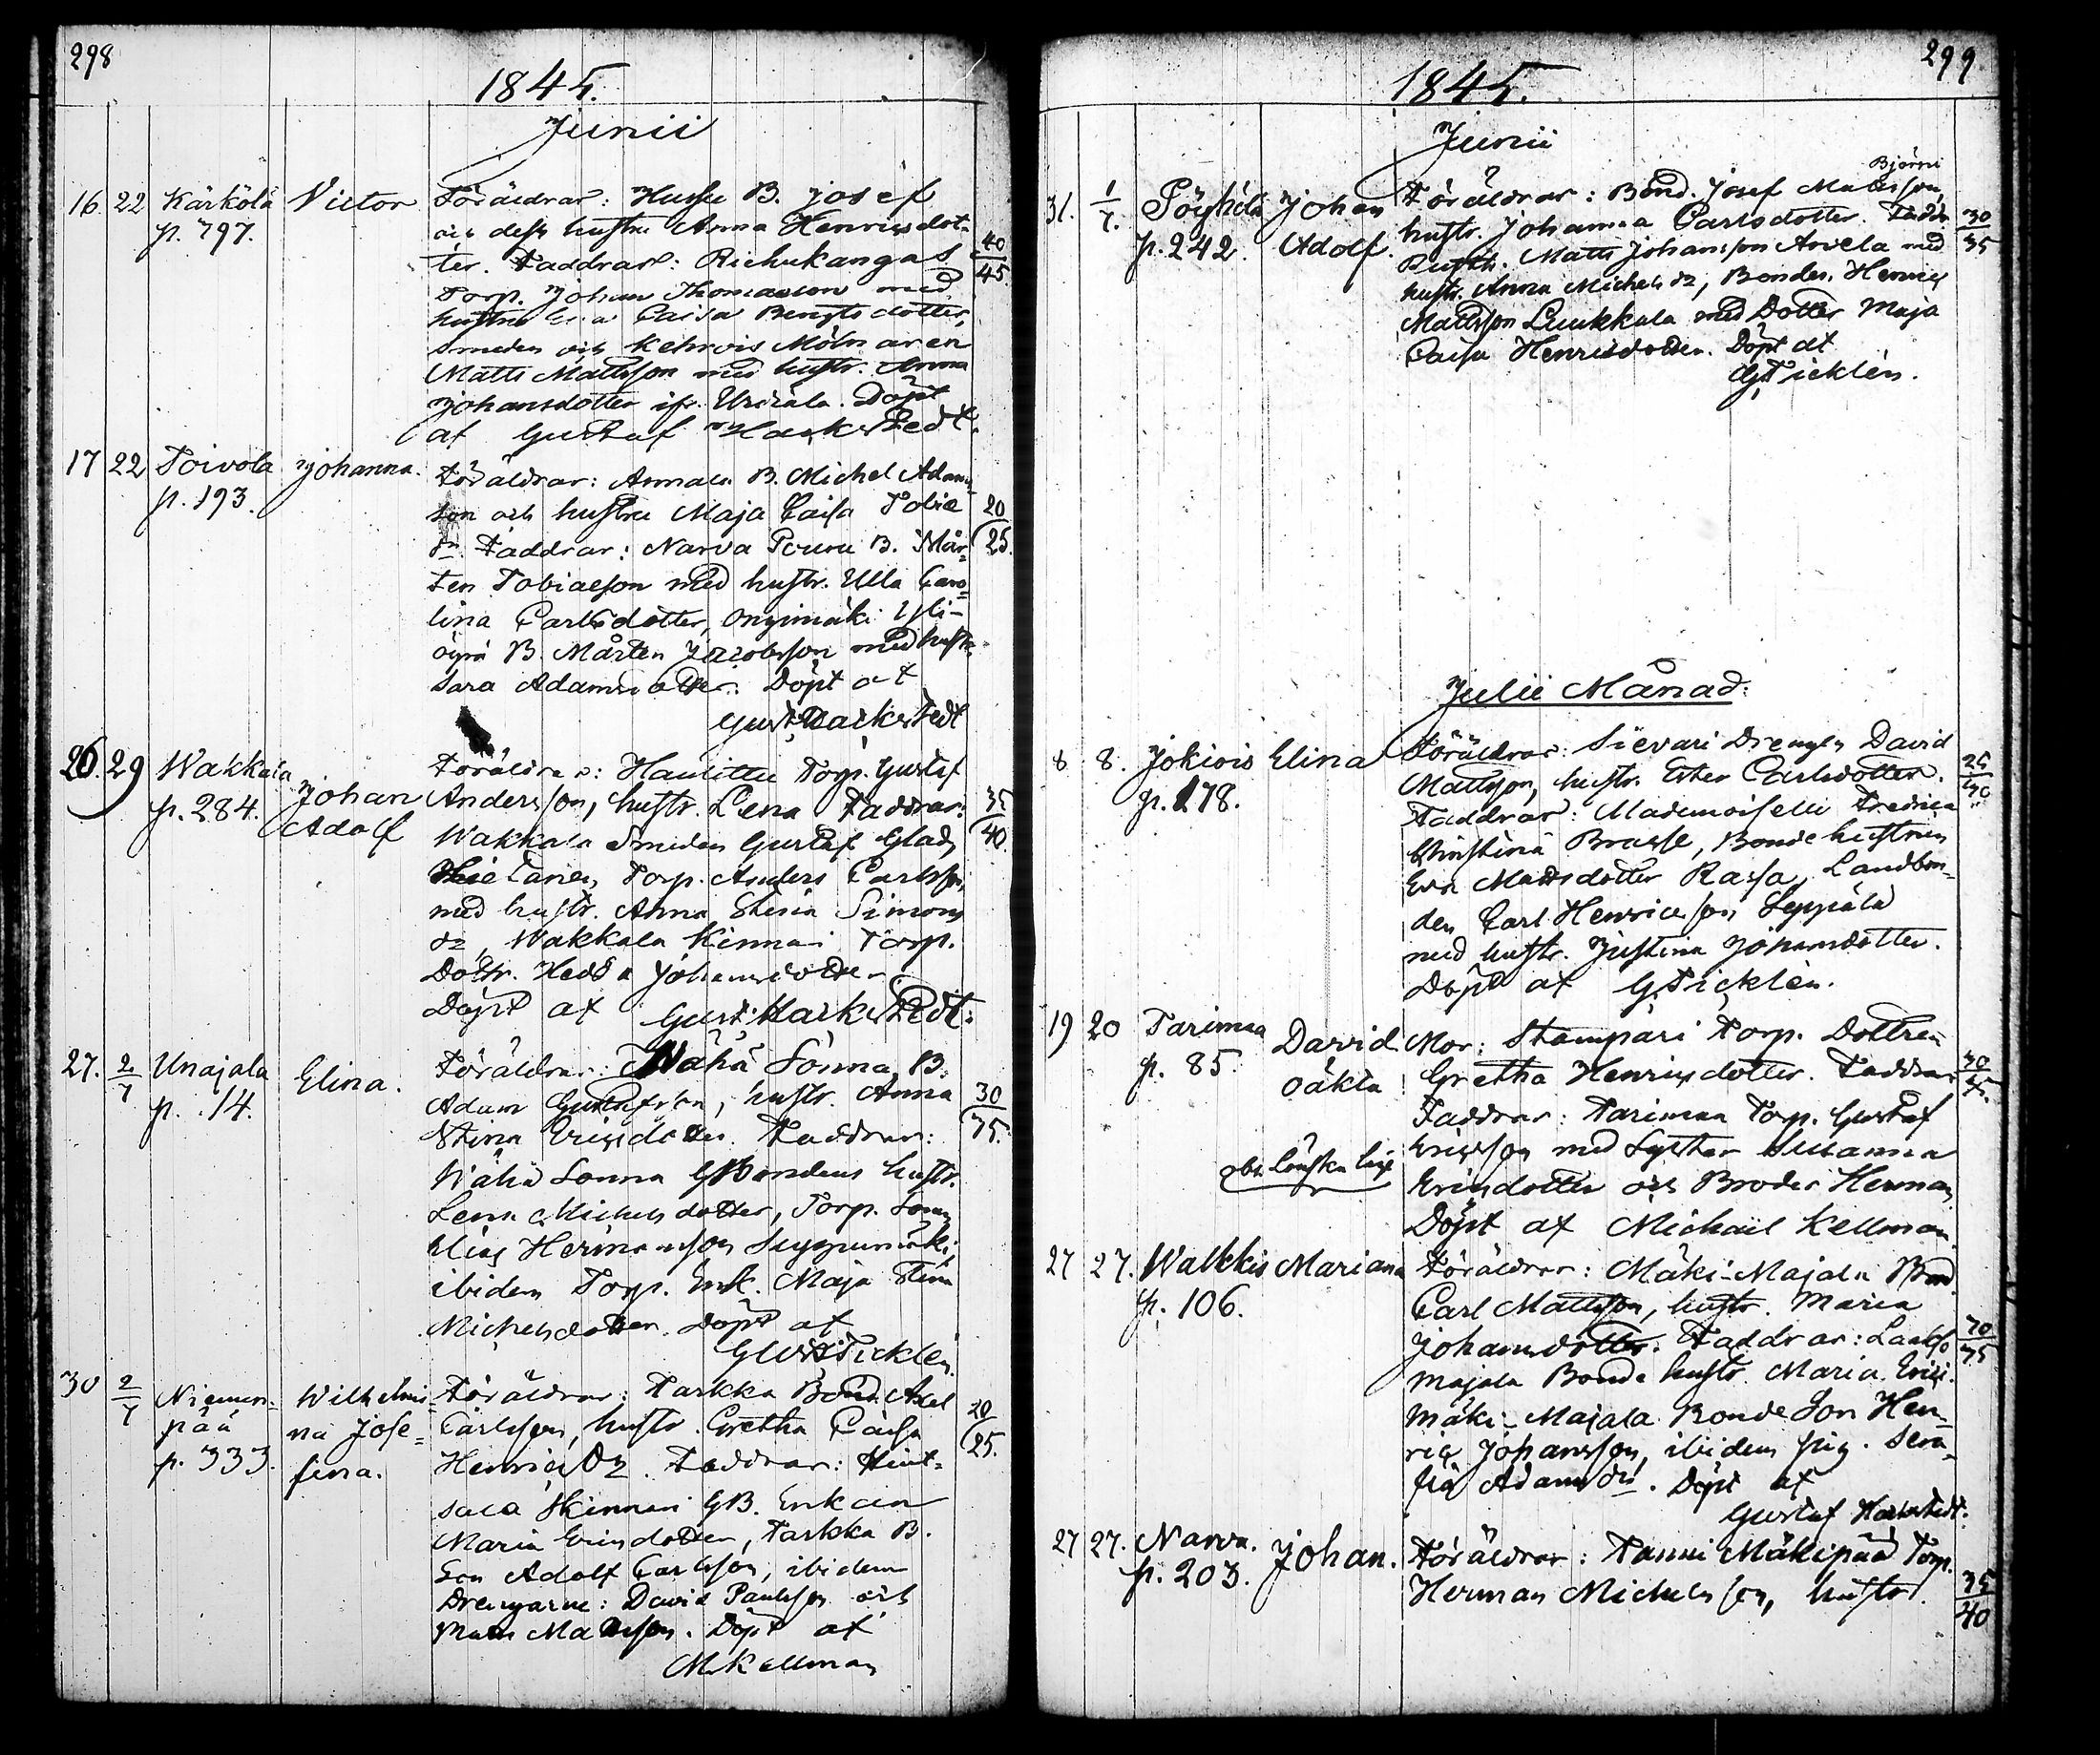 298
1845.
Junii
16. 22 Kärkölä Victor Föräldrar: Hussu B. Josef
p. 797. och dess hustru Anna Henricsdot-
ter. Faddrar: Riehukangas 40/45.
Torp. Johan Thomasson med
hustru Caisa Bengtsdotter,
Smeden och Mölnaren
Matts Mattsson med hustr. Anna
Johansdotter ifr. Urdiala. Döpt
af Gustaf Hackstedt.
17 22 Toivola Johanna. Föräldrar: Annala B. Michel Adams-
p. 193. son och hustru Maja Caisa Tobiæ 20/25.
dr. Faddrar: Narva Pouru B. Mår-
ten Tobiæson med hustr. Ulla Caro-
lina Carlsdotter, Onnimäki Yli-
B. Mårten Jacobsson med hustr.
Sara Adamsdotter. Döpt af
Gust. Hackstedt
26. 29 Wakkala Föräldrar: Haulittu Torp. Gustaf
p. 284. Johan Andersson, hustr. Lena Faddrar: 35/40.
Adolf Wakkala Smeden Gustaf Glad,
Hietanen, Torp. Anders Carlsson,
med hustr. Anna Stina Simons
dr, Wakkala Kinnari Torp.
Dottr. Hedda Johansdotter.
Döpt af Gust. Hackstedt.
27. 2/7 Unajala Elina. Föräldrar: Wähä Sonna B.
p. 14. Adam Gustafsson, hustr. Anna 30/35.
Stina Ericsdotter. Faddrar:
Wähä Sonna GBondens hustr.
Lena Michelsdotter, Torp.
Elias Hermansson
ibidem Torp. Enk. Maja Stina
Michelsdotter. Döpt af
Gust Ticklén.
30 2/7 Niemen- Wilhelmi- Föräldrar: Tarkka Bond. Axel
pää na Jose- Carlsson, hustr. Gretha Caisa 20/25.
p. 333. fina. Henricsdr. Faddrar: Hint-
sala Skinnari GB. Enkan
Maria Ericsdotter, Tarkka B.
Son Adolf Carlsson, ibidem
Drengarne: David Paulsson och
Matts Mattsson. Döpt af
M. Kellman
299
1845.
Junii
Björni
31. 1/7. Pöyhölä Johan Föräldrar: Bond. Josef Mattsson,
p. 242. Adolf. hustr. Johanna Carlsdotter. Faddr. 30/35
Matts Johansson Arvela med
hustr. Anna Michelsdr, Bonden Henric
Mattsson Luukkala med Dotter Maja
Caisa Henricsdotter. Döpt af
G. Ticklén.
Julii Månad:
8 8. Jokiois Elina Föräldrar: Sievari Drengen David
p. 178. Mattsson, hustr. Ester Carlsdotter. 35/40
Faddrar: Mademoiselle Fredrica
Christina Brusse, Bondehustrun
Eva Mattsdotter Rassa, Landbon-
den Carl Henricsson Seppälä
med hustr. Justina Johansdotter.
Döpt af G. Ticklén.
19 20 Tarimaa David Mor: Stampari Torp. Dottren
p. 85. oäkta Gretha Henricsdotter. Faddrar
Faddrar: Tarimaa Torp. Gustaf
Ericsson med Syster Susanna
Ericsdotter och Broder Herman
Döpt af Michael Kellman.
27 27. Walkkis Mariana Föräldrar: Mäki-Majala Bond.
p. 106. Carl Mattsson, hustr. Maria
Johansdotter. Faddrar: 70/75
Majala Bonde hustr. Maria
Mäki-Majala Bonde Son Hen-
ric Johansson, ibidem pig. Sera-
fia Adamsdr. Döpt af
Gustaf Hackstedt.
27 27. Narva. Johan. Föräldrar: Tanni Mäkipää Torp.
p. 203. Herman Michelsson, hustr. 35/40